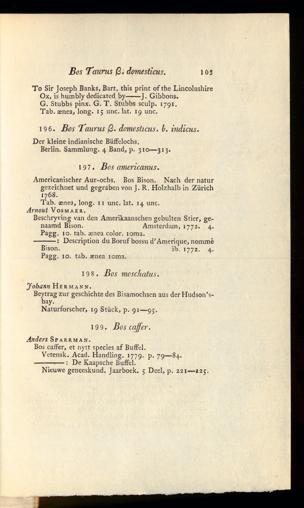 Bos Taurus β. domesticus. 103
To Sir Joseph Banks, Bart. this print of the Lincolnshire
Ox, is humbly dedicated by——J. Gibbons.
G. Stubbs pinx. G. T. Stubbs sculp. 1791.
Tab. ænea, long. 15 unc. lat. 19 unc.
196. Bos Taurus β. domesticus. b. indicus.
Der kleine indianische Büffelochs.
Berlin. Sammlung. 4 Band, p. 310—313.
197. Bos americanus.
Americanischer Aur-ochs. Bos Bison. Nach der natur
gezeichnet und gegraben von J. R. Holzhalb in Zürich
1768.
Tab. ænea, long. 11 unc. lat. 14 unc.
Arnout VOSMAER.
Beschryving van den Amerikaanschen gebulten Stier, ge-
naamd Bison. Amsterdam, 1772. 4.
Pagg. 10. tab. ænea color. 1oma.
———: Description du Boeuf bossu d'Amerique, nommé
Bison. ib. 1772. 4.
Pagg. 10. tab. ænea 1oma.
198. Bos moschatus.
Johann HERMANN.
Beytrag zur geschichte des Bisamochsen aus der Hudson's-
bay.
Naturforscher, 19 Stück, p. 91—95.
199. Bos caffer.
Anders SPARRMAN.
Bos caffer, et nytt species af Buffel.
Vetensk. Acad. Handling. 1779. p. 79—84.
———: De Kaapsche Buffel.
Nieuwe geneeskund. Jaarboek. 5 Deel, p. 221—225.